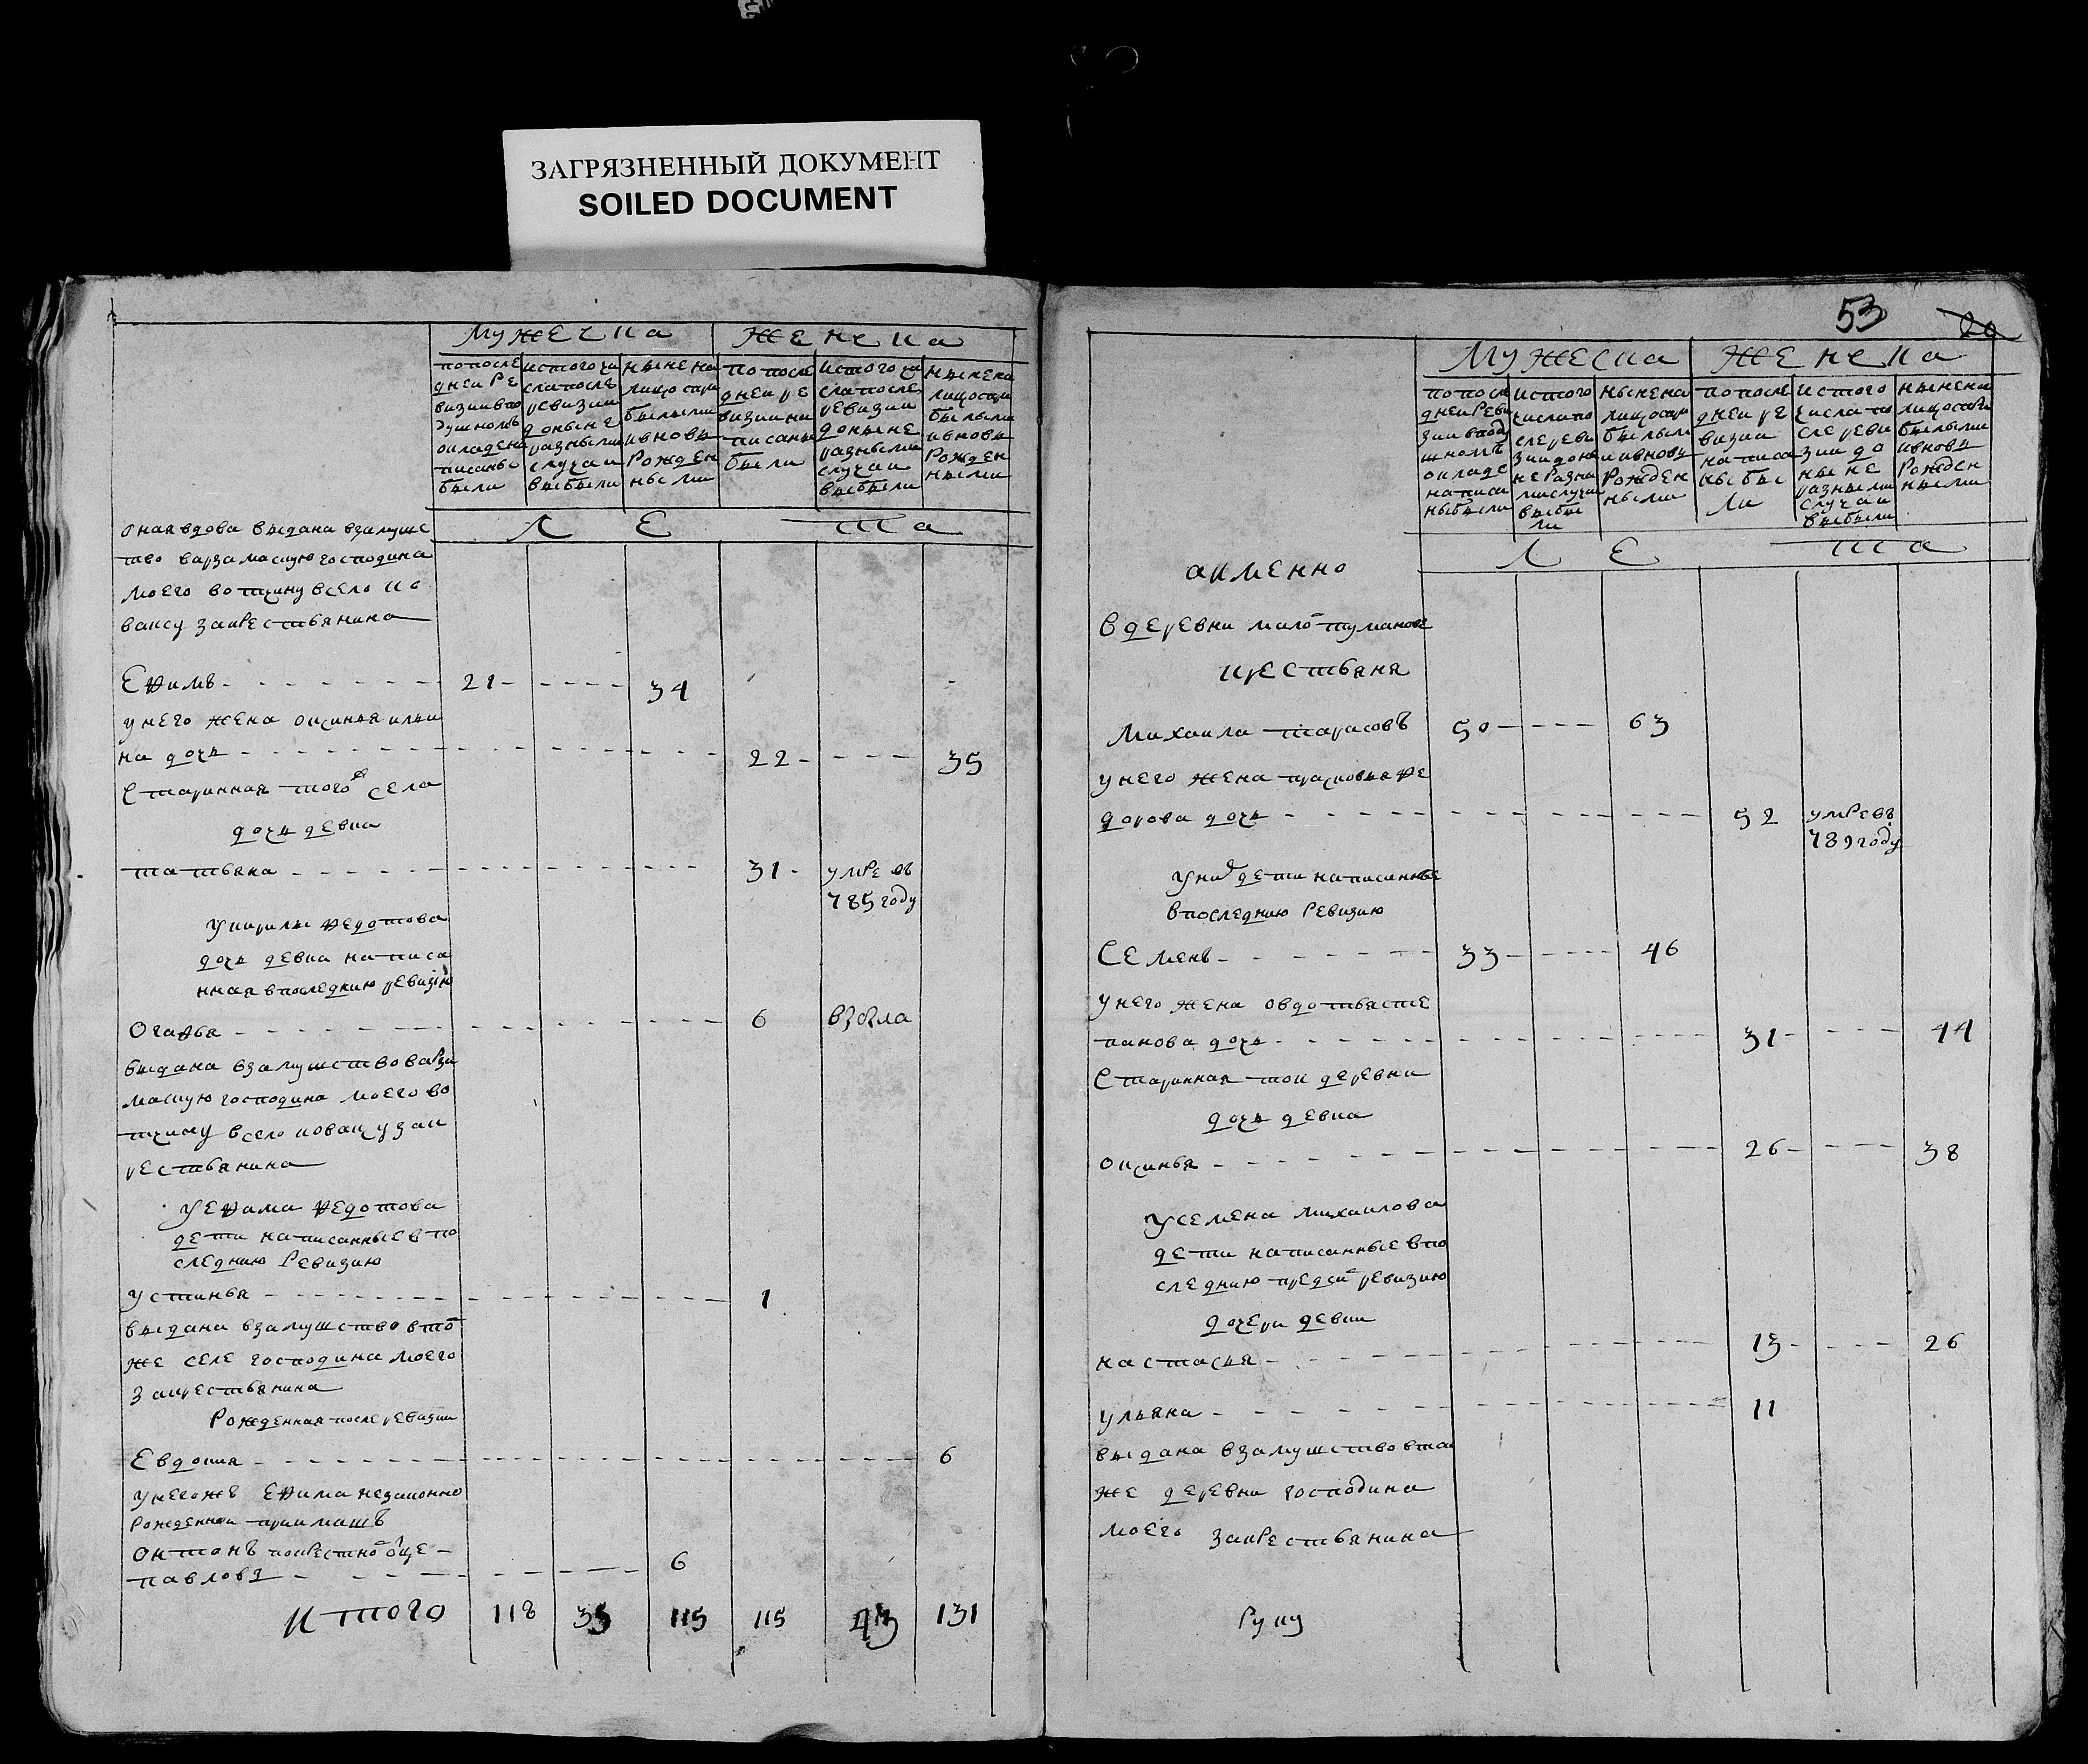 ЗАГРЯЗНЕННЫЙ ДОКУМЕНТ
SOILED DOCUMENT
мужеска женска
попосле дней ре визии впо душномъ окладе на писаны были
истого чи сла послѣ ревизии доныне разными случаи выбыли
ныне на лицо спри былыми ивновь рожден ными
попосле дней ре визии на писаны были
истого чи сла после ревизии доныне разными случаи выбыли
ныне на лицо спри былыми ивновь рожден ными
ле та
оная вдова выдана взамуше
тво варзамаскую господина
моего вотчину всело ко
ваксу закрестьянина
Ефимъ 21 34
унего жена оксинья ильи
на дочь 22 35
старинная тогож села
дочь девка
татьяна 31 умре въ
785 году
укирилы федотова
дочь девка написа
нная впоследнюю ревизию
Огафья 6 взросла
выдана взамужство варза
маскую господина моего во
тчину всело коваксу зак
рестьянина
уефима федотова
дети написанные впо
следнюю ревизию
устинья 1
выдана взамужство вто
же селе господина моего
закрестьянина
рожденная после ревизии
Евдокия 6
унегожъ Ефима незаконно
рожденной приимышъ
онтонъ покрестно отце
павловъ 6
Итого 118 35 115 115 43 131
53
20
мужеска женска
попосле дней реви зии вподу шномъ окладе написа ны были
истого числа по сле реви зии доны не разны ми случаи выбы ли
ныне на лицо спри былыми ивновь рожден ными
попосле дней ре визии написа ны бы ли
истого числа по сле реви зии до ныне разными случаи выбыли
ныне на лицо спри былыми ивновь рожден ными
ле та
аименно
вдеревни мало туманове
крестьяня
Михаила тарасовъ 50 63
унего жена прасковья фе
дорова дочь 52 умре въ
789 году
уних дети написанные
впоследнюю ревизию
Семенъ 33 46
унего жена овдотья сте
панова дочь 31 44
старинная той деревни
дочь девка
оксинья 26 38
усемена михаилова
дети написанные впо
следнюю пред сим ревизию
дочери девки
настасья 13 26
ульяна 11
выдана взамужство втои
же деревни господина
моего закрестьянина
Руку